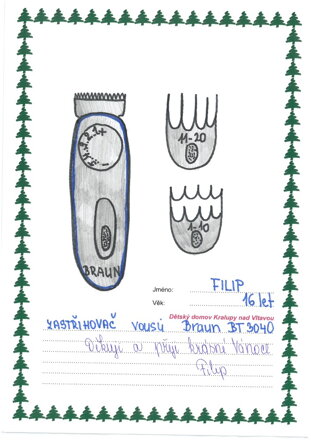 11-20
1-10
BRAUN
Jméno: FILIP
Věk: 16 let
Dětský domov Kralupy nad Vltavou
ZASTŘIHOVAČ vousů Braun BT 3040
Děkuji a přeji krásné Vánoce
Filip